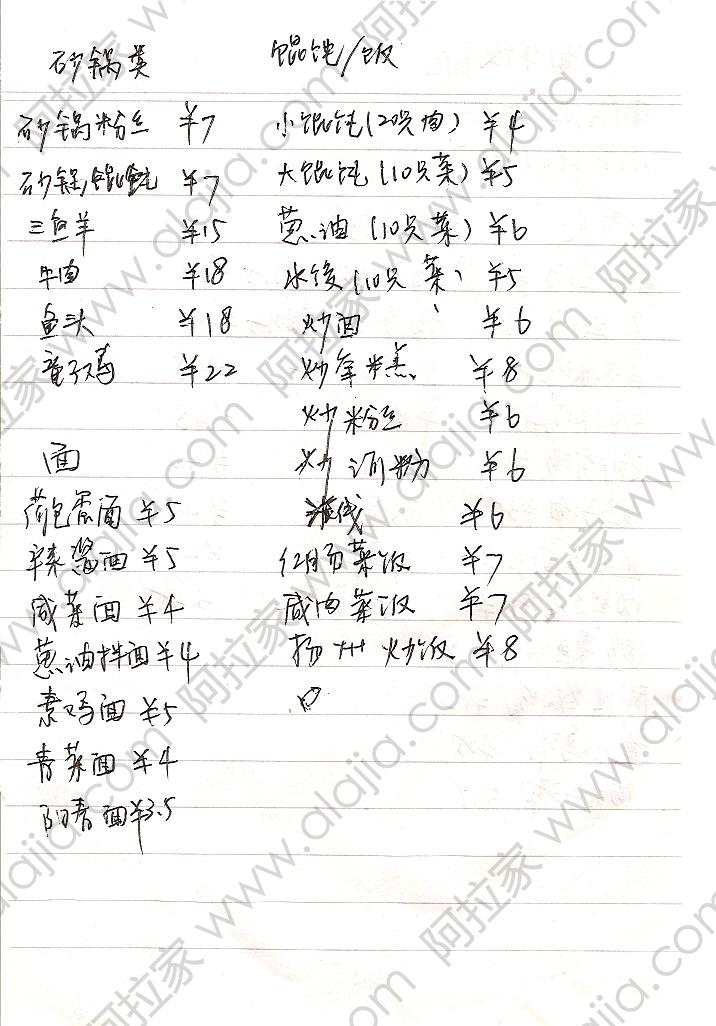 砂锅类
砂锅粉丝 ¥7
砂锅馄饨 ¥7
三鱼羊 ¥15
牛肉 ¥18
鱼头 ¥18
童子鸡 ¥22
面
荷包蛋面 ¥5
辣酱面 ¥5
咸菜面 ¥4
葱油拌面 ¥4
素鸡面 ¥5
青菜面 ¥4
阳春面 ¥3.5
馄饨/饭
小馄饨(20只肉) ¥4
大馄饨(10只菜) ¥5
葱油(10只菜) ¥6
冰馊(10只菜) ¥5
炒面 ¥6
炒年糕 ¥8
炒粉丝 ¥6
炒河粉 ¥6
¥6
菜饭 ¥7
咸肉菜饭 ¥7
扬州炒饭 ¥8
阿拉家 www.alajia.com